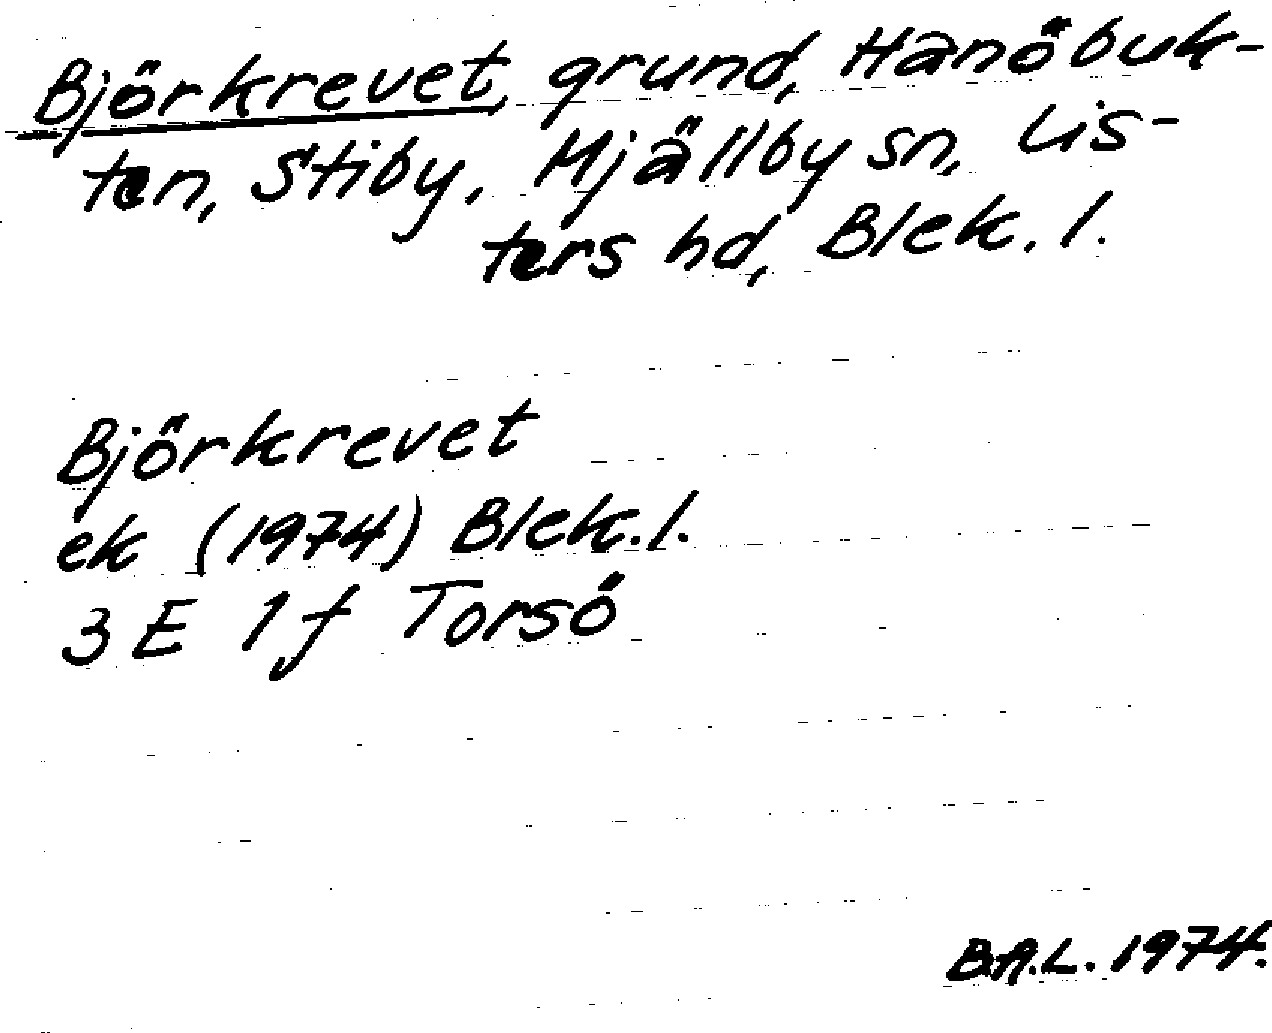 Björkrevet, grund, Hanöbuk-
ten, Stiby, Mjällby sn, Lis-
ters hd, Blek. l.
Björkrevet
ek (1974) Blek. l.
3 E 1 f Torsö
B.A.L. 1974.